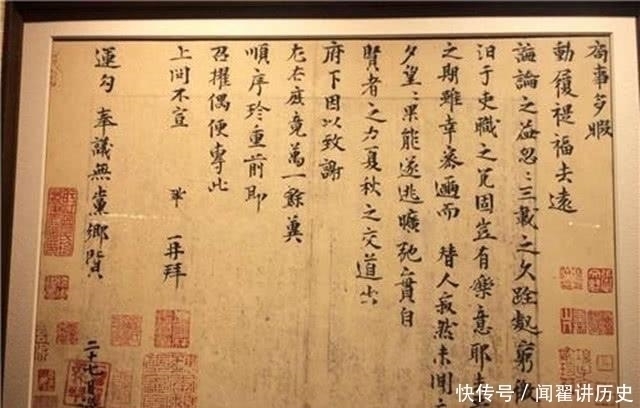 局事多暇
動履禔福去遠
誨論之益忽〻三載之久跧處窮
汩于吏職之冗固豈有樂意耶去
之期雖幸密邇而替人寂然未聞
夕望〻果能遂逃曠弛實自
賢者之力夏秋之交道出
府下因以致謝
左右庶竟萬一餘冀
順序珍重前即
召擢偶便專此
上問不宣 鞏再拜
運勾奉議無黨鄉賢 二十七日
快传号／闻翟讲历史